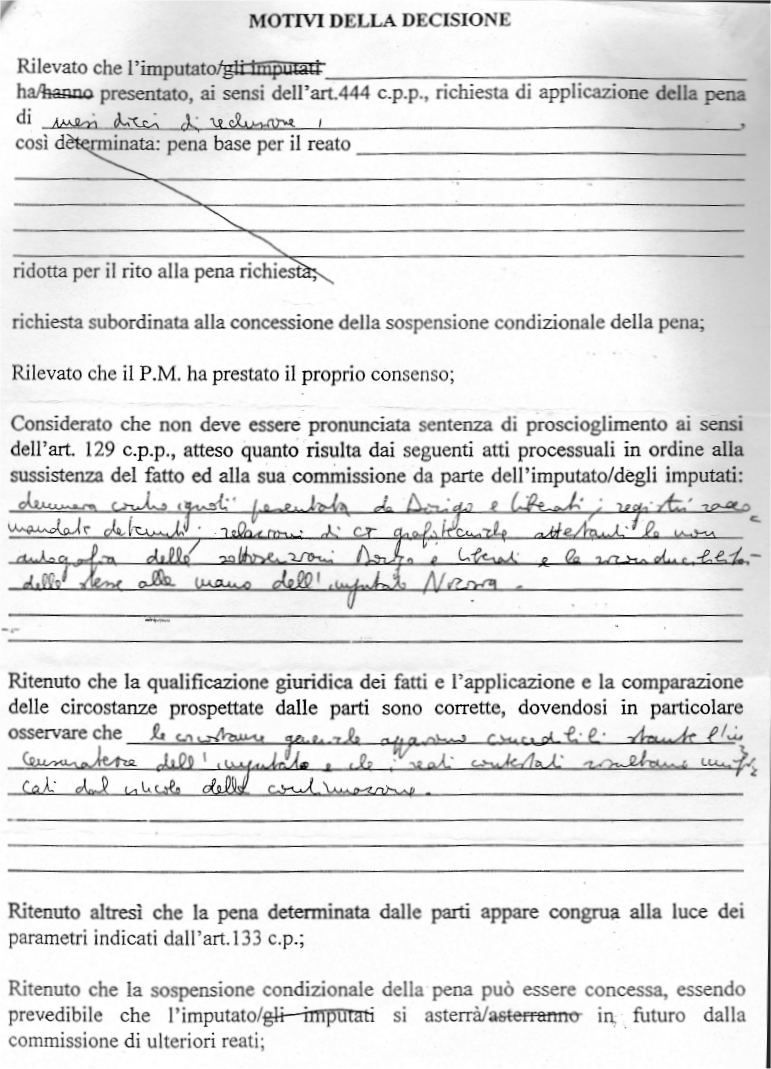 MOTIVI DELLA DECISIONE
Rilevato che l'imputato/gli imputati
ha/hanno presentato, ai sensi dell'art.444 c.p.p., richiesta di applicazione della pena
di mesi dieci di reclusione,
così determinata: pena base per il reato
ridotta per il rito alla pena richiesta;
richiesta subordinata alla concessione della sospensione condizionale della pena;
Rilevato che il P.M. ha prestato il proprio consenso;
Considerato che non deve essere pronunciata sentenza di proscioglimento ai sensi
dell'art. 129 c.p.p., atteso quanto risulta dai seguenti atti processuali in ordine alla
sussistenza del fatto ed alla sua commissione da parte dell'imputato/degli imputati:
denuncia contro ignoti presentata da e Liberati; registri racco
mandate detenuti; relazioni di CT grafotecniche attestanti la non
autografia delle sottoscrizioni e Liberati e la riconducibilità
delle stesse alla mano dell'imputato
Ritenuto che la qualificazione giuridica dei fatti e l'applicazione e la comparazione
delle circostanze prospettate dalle parti sono corrette, dovendosi in particolare
osservare che le circostanze generiche appaiono concedibili stante l'in
censuratezza dell'imputato e che i reati contestati risultano unifi
cati dal vincolo della continuazione.
Ritenuto altresì che la pena determinata dalle parti appare congrua alla luce dei
parametri indicati dall'art.133 c.p.;
Ritenuto che la sospensione condizionale della pena può essere concessa, essendo
prevedibile che l'imputato/gli imputati si asterrà/asterranno in futuro dalla
commissione di ulteriori reati;